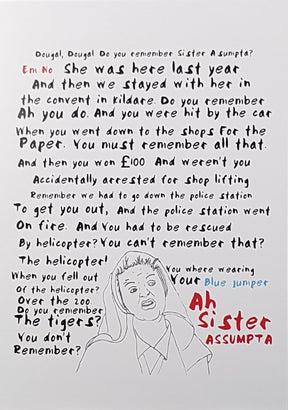 Dougal, Dougal Do you remember Sister Assumpta?
Em No She was here last year
And then we stayed with her in
the convent in Kildare. Do you remember
Ah you do. And you were hit by the car
When you went down to the shops For the
Paper. You must remember all that.
And then you won £100 And weren't you
Accidentally arrested for shop lifting
Remember we had to go down the police station
To get you out, And the police station went
On fire. And You had to be rescued
By helicopter? You can't remember that?
The helicopter!
When you fell out
Of the helicopter?
Over the zoo.
Do you remember
The tigers?
You don't
Remember?
You where wearing
Your Blue jumper
Ah
Sister
ASSUMPTA